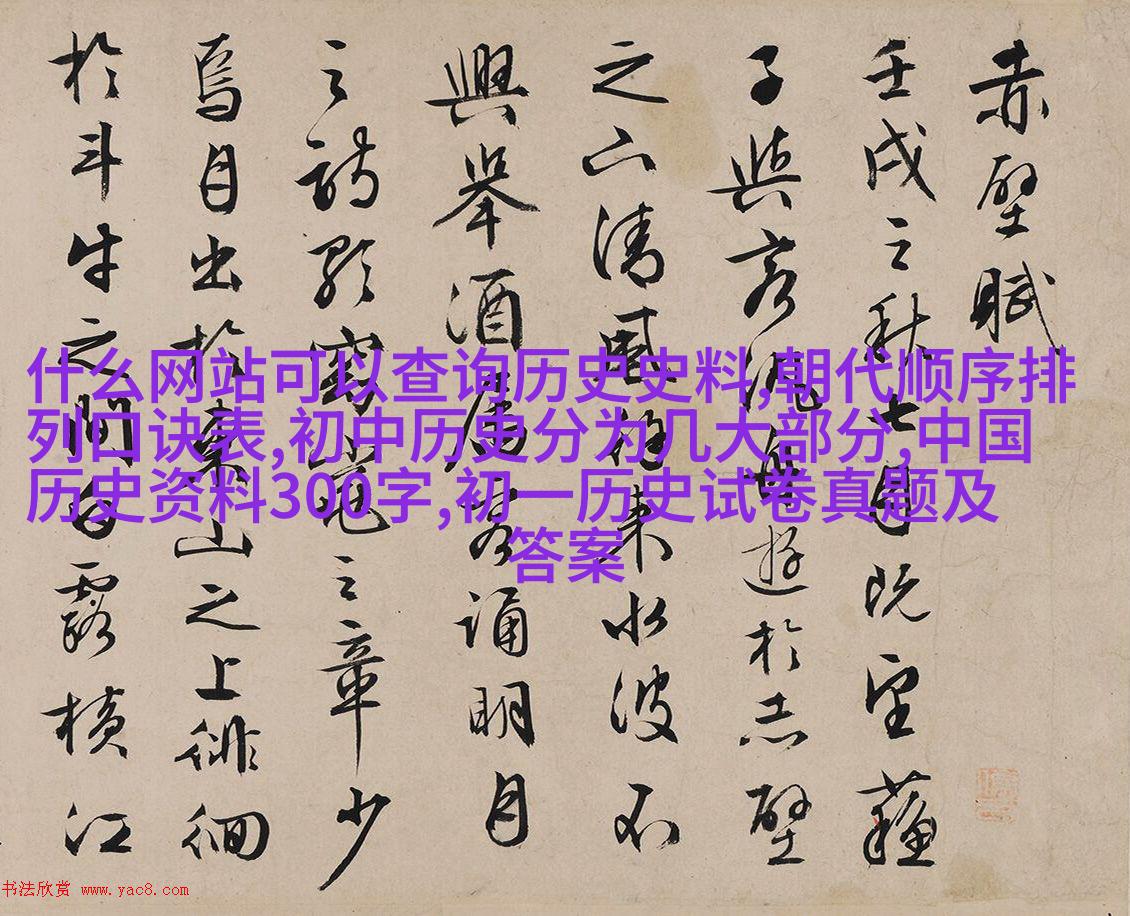 赤壁賦
壬戌之秋七月既望蘓
子與客泛舟遊於赤壁
之下清風徐來水波不
興舉酒屬客誦明月
之詩歌窈窕之章少
焉月出於東山之上徘徊
於斗牛之間白露橫江
什么网站可以查询历史史料,朝代顺序排
列口诀表,初中历史分为几大部分,中国
历史资料300字,初一历史试卷真题及
答案
书法欣赏 www.yac8.com